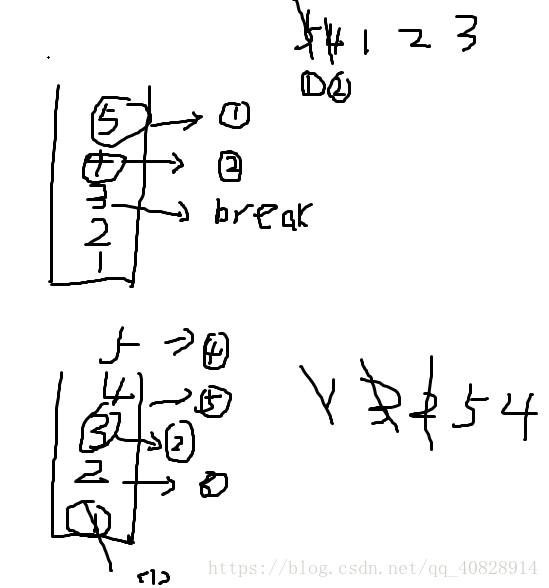 5 4 1 2 3
① ②
5 → ①
4 → ②
3 → break
2
1
5 → ④
4 → ⑤
3 → ②
2 → ③
1
1 3 2 5 4
https://blog.csdn.net/qq_40828914